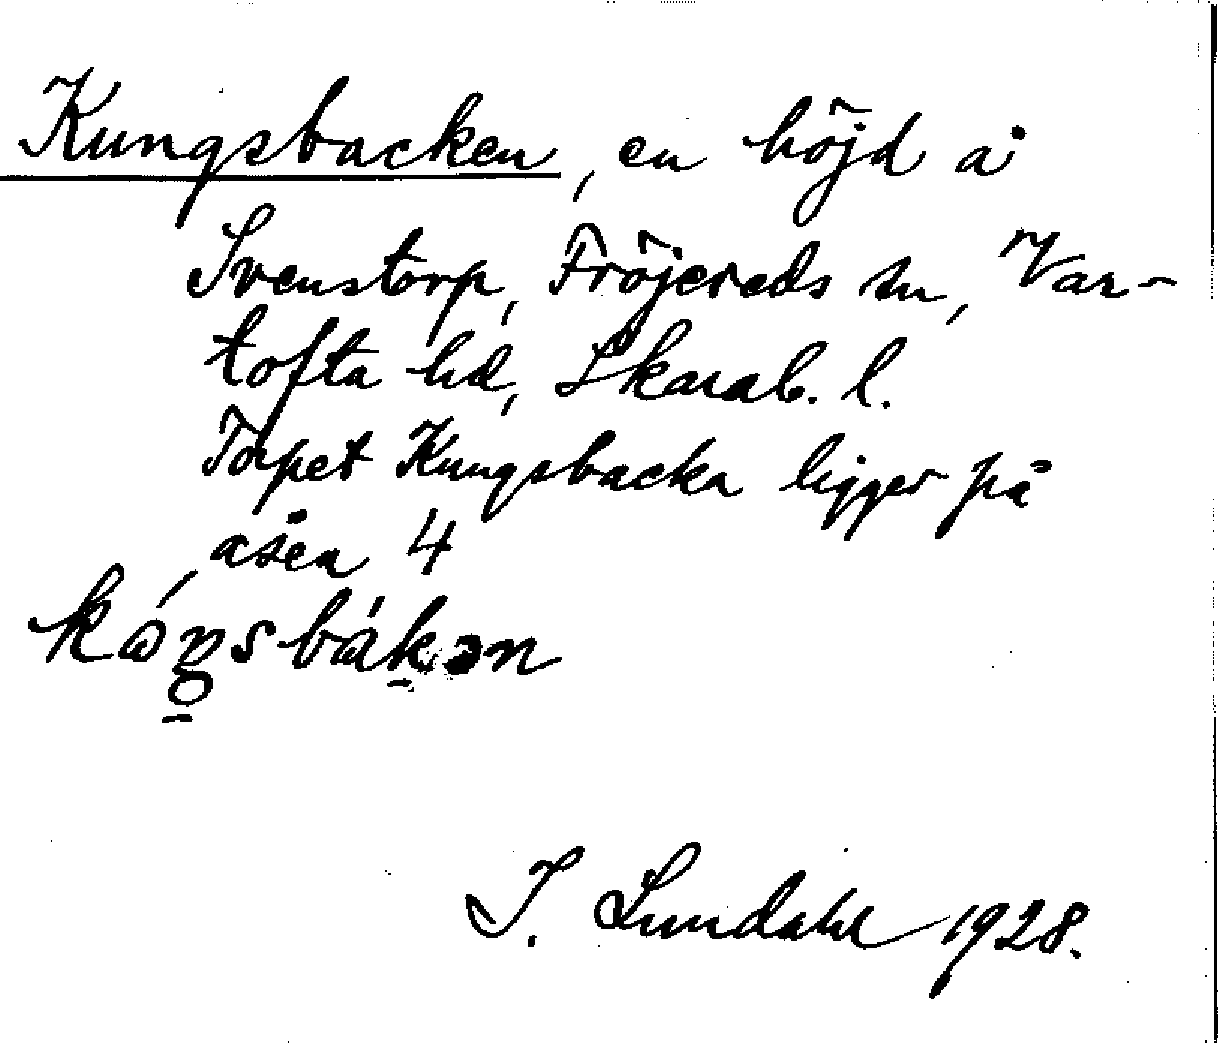 Kungsbacken, en höjd å
Svenstorp, Fröjereds sn, Var-
tofta hd, Skarab. l.
Torpet Kungsbacka ligger på
åsen 4
I. Lundahl 1928.